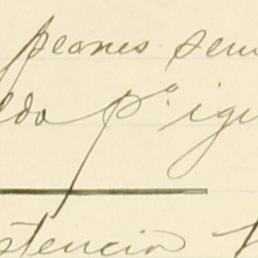 peones sem
eldo p.º igu
stencia